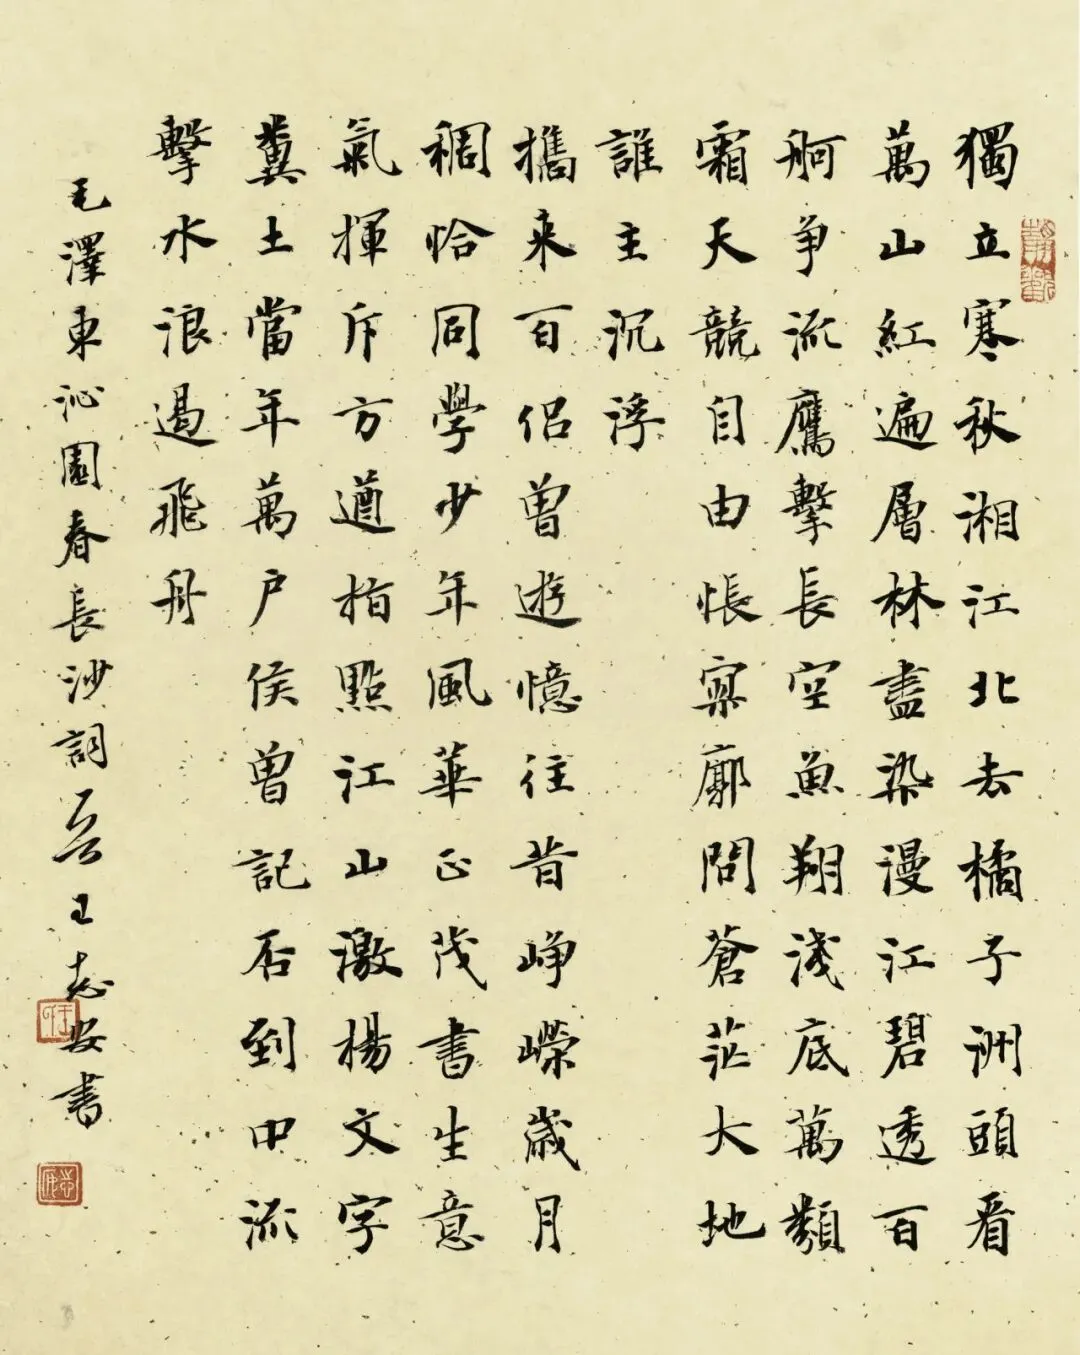 獨立寒秋湘江北去橘子洲頭看
萬山紅遍層林盡染漫江碧透百
舸争流鷹擊長空魚翔淺底萬類
霜天競自由悵寥廓問蒼茫大地
誰主沉浮
攜来百侣曾遊憶往昔崢嶸歲月
稠恰同學少年風華正茂書生意
氣揮斥方遒指點江山激楊文字
糞土當年萬户侯曾記否到中流
擊水浪遏飛舟
毛澤東沁園春長沙詞一首王志安書